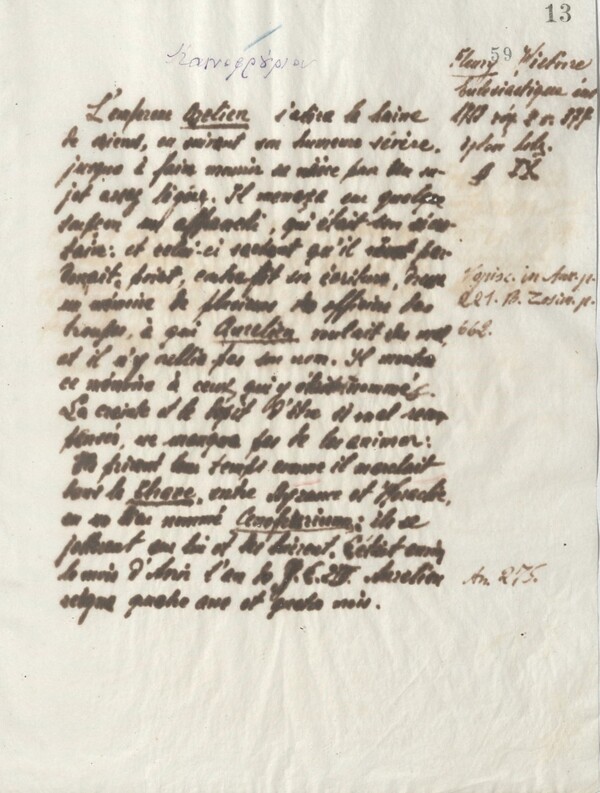 13
59
Καινοφρούριον
Fleury Histoire
Ecclésiastique
IX
L'empereur Aurelien s'attira la haine
de siens, en suivant son humeur sévère,
jusque à faire mourir sa nièce par un su-
jet assez léger. Il menaça sur quelque
soupçon un affranchi, qui était son secré-
taire: et celui-ci sachant qu'il ne par-
donnait point, contrefit son écriture, dressa
un mémoire de plusieurs des officiers des
troupes, à qui Aurelien voulait du mal,
et il n'y oublia pas son nom. Il montra
ce mémoire à ceux qui y étaient nommés.
La crainte et le dépit d'être si mal recom-
pensés, ne manqua pas de les animer:
Ils prirent leur temps comme il marchait
vers la Thrace, entre Byzance et Heraclée,
en un lieu nommé Cenofrurium; ils se
jettèrent sur lui et le tuèrent. C'était
le mois d'Avril l'an de J. C. Aurelien
regna quatre ans et quatre mois.
Vopisc. in Aur. p.
221. B. Zosim. p.
662.
An. 275.